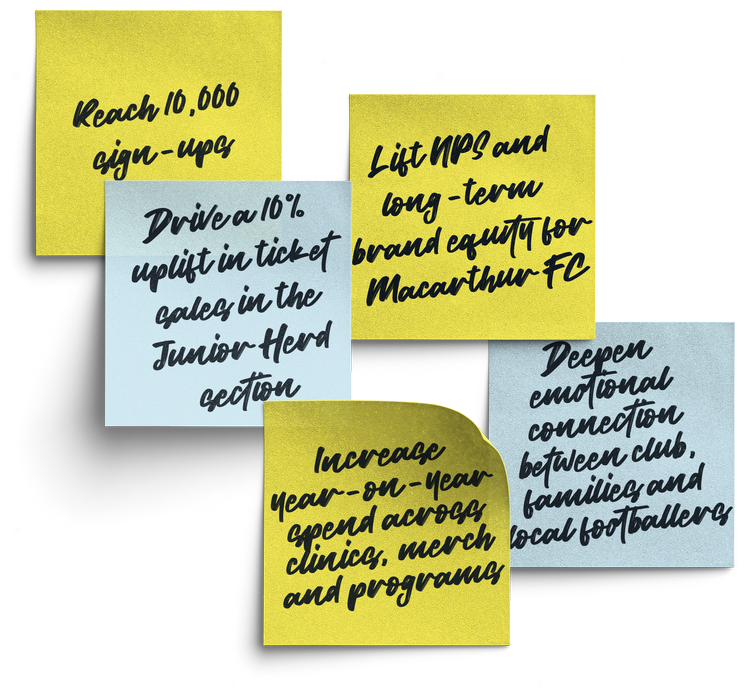 Reach 10,000
sign-ups
Drive a 10%
uplift in ticket
sales in the
Junior Herd
section
Lift NPS and
long-term
brand equity for
Macarthur FC
Increase
year-on-year
spend across
clinics, merch
and programs
Deepen
emotional
connection
between club,
families and
local footballers